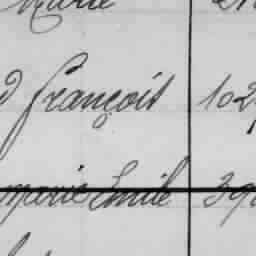 Marie
d François 102
Marie Emile 39